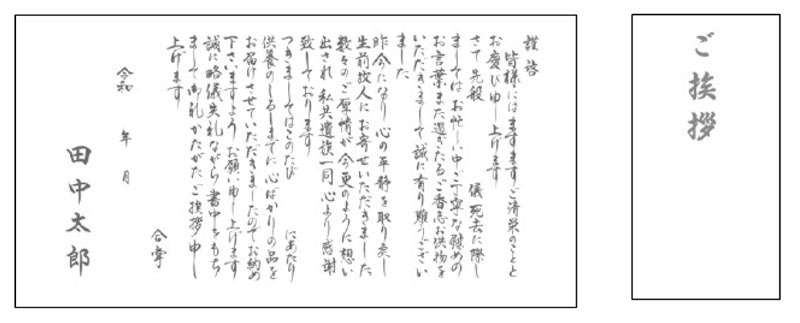 ご挨拶
謹啓
皆様にはますますご清栄のことと
お慶び申し上げます
さて 先般 儀 死去に際し
ましては お忙しい中 ご丁寧な慰めの
お言葉 また過ぎたるご香志お供物を
いただきまして 誠に有り難うござい
ました
昨今になり 心の平静を取り戻し
生前故人にお寄せいただきました
数々のご厚情が今更のように想い
出され 私共遺族一同 心より感謝
致しております
つきましてはこのたび にあたり
供養のしるしまでに 心ばかりの品を
お届けさせていただきましたのでお納め
下さいますよう お願い申し上げます
誠に略儀失礼ながら 書中をもち
まして御礼かたがたご挨拶申し
上げます
合掌
令和 年 月
田中太郎